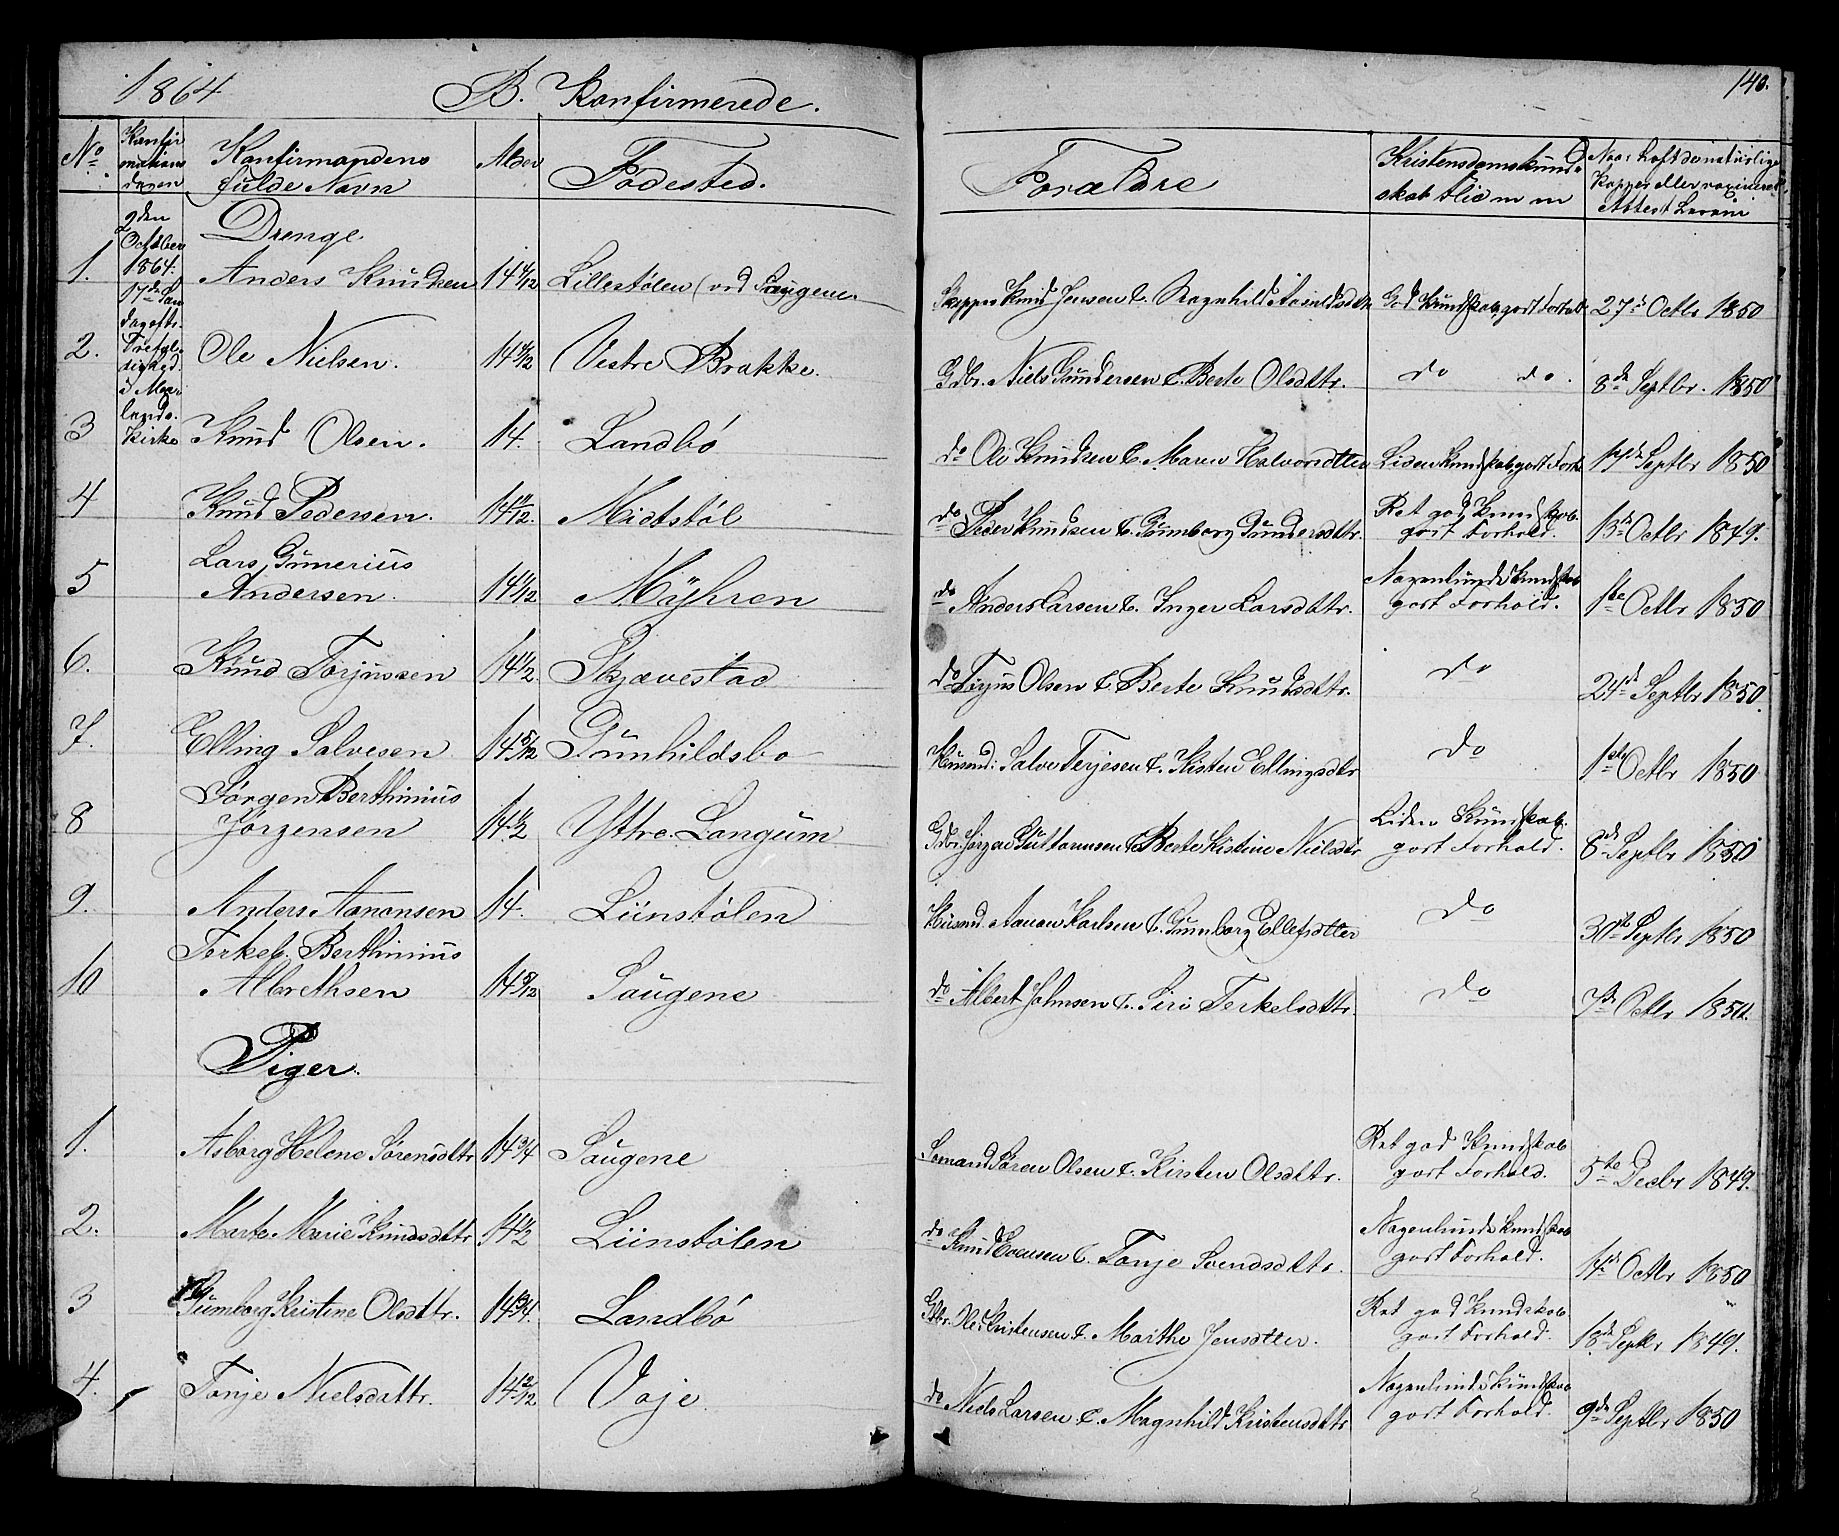 1864 B. Konfirmerede. 140.
No. Konfirmationsdagen Konfirmandens fulde Navn Alder Fødested. Forældre Kristendomskundskab Flid m m Naar haft de naturlige Kopper eller vaccineret
9den October 1864. 17de Søndag eftr. Trefoldighed i Kirke
Drenge
1. Anders Knudsen 14 Lillestølen (ved Saugene Knud Jensen & Ragnhild God Kundskab, godt Forhold 27de Octbr 1850
2. Ole Nielsen. 14 Vestre Brække. Gdbr. Niels Gundersen & Berte Olsdttr. do do. 8de Septbr. 1850
3 Knud Olsen. 14. Landbø do Ole Knudsen & Maren Halvorsdtter Liden Kundskab, godt Forh. Septbr 1850
4 Knud Pedersen. 14 Midtstøl do Peder Knudsen & Gunnborg Gundersdttr. Ret god Kundskab. godt Forhold. 13de Octbr 1849.
5 Lars Gunerius Andersen. 14 1/12 Myhren do Anders Larsen & Inger Larsdttr. Nogenlunde Kundskab godt Forhold. 1ste Octbr 1850
6. Knud Torjussen 14 1/2 Skjævestad do Torjus Olsen & Berte Knudsdttr. do Septbr 1850.
7. Elling Salvesen 14 5/12 Gunhildsbo Husmd: Salve Terjesen & Kisten Ellingsdtr do 1ste Octbr 1850
8 Jørgen Berthinius Jørgensen 14 1/2 Yttre Langum Gdbr. Jørgen Guttormsen & Berte Kistine Nielsdtr Liden Kundskab. godt Forhold. 8de Septbr 1850
9. Anders Aanonsen 14. Liinstølen Husmd. Aanon Karlsen & Gunnborg Ellefsdtter do 30te Septbr 1850
10 Terkel Berthinius Albrethsen 14 5/12 Saugene do Albert Johnsen & Siri Terkelsdttr. do 7de Octbr 1850.
Piger.
1. Asborg Helene Sörensdttr 14 3/4 Saugene Sømand Søren Olsen & Kirsten Olsdttr. Ret god Kundskab godt Forhold. 5te Decbr 1849.
2. Marte Marie Knudsdttr 14 1/2 Liinstølen do Knud Evensen & Tonje Svendsdttr. Nogenlunde Kundskab godt Forhold. Octbr 1850
3 Gunnborg Kristine Olsdttr. 14 3/4. Landbö Gdbr. Ole Cristensen & Marthe Jensdtter. Ret god Kundskab godt Forhold. 18de Septbr 1849.
4. Tonje Nielsdattr. 14 Voje do Niels Larsen & Magnhild Kristensdttr Nogenlunde Kundskab godt Forhold. 9de Septbr 1850